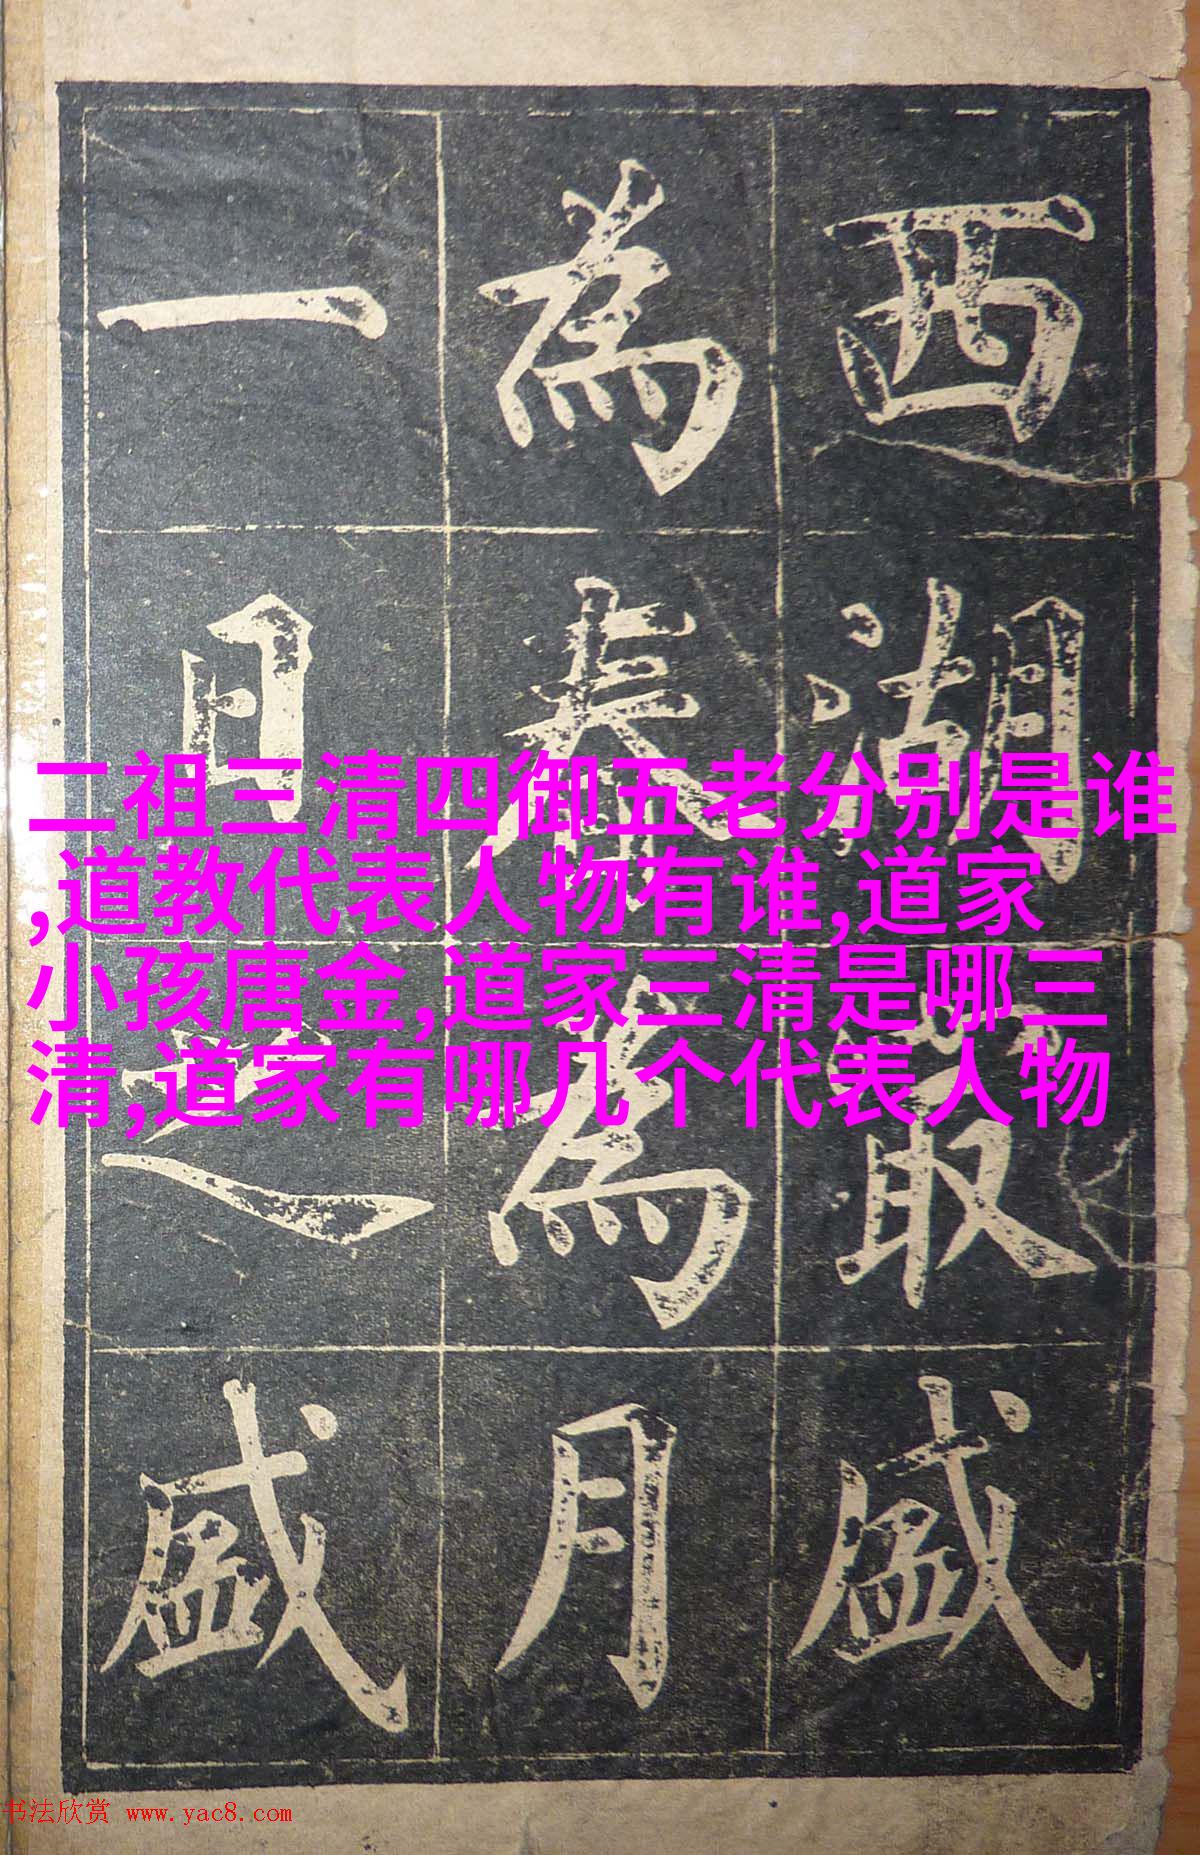 西湖最盛
為春為月
一日之盛
二祖三清四御五老分别是谁
,道教代表人物有谁,道家
小孩唐金,道家三清是哪三
清,道家有哪几个代表人物
书法欣赏 www.yac8.com